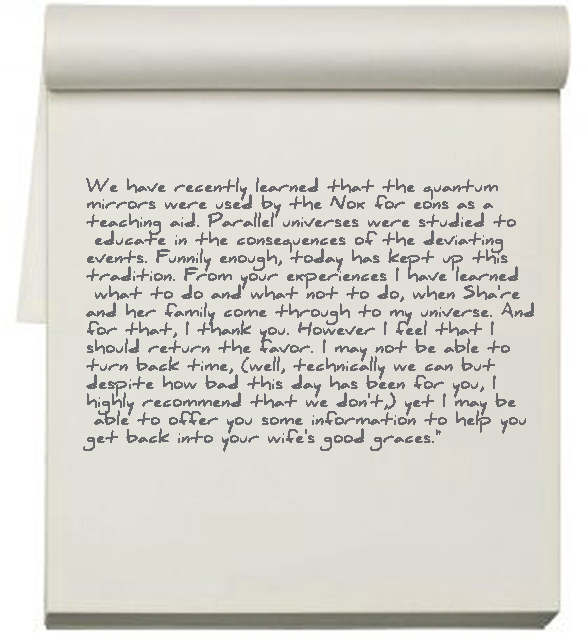 We have recently learned that the quantum
mirrors were used by the Nox for eons as a
teaching aid. Parallel universes were studied to
educate in the consequences of the deviating
events. Funnily enough, today has kept up this
tradition. From your experiences I have learned
what to do and what not to do, when Sha're
and her family come through to my universe. And
for that, I thank you. However I feel that I
should return the favor. I may not be able to
turn back time, (well, technically we can but
despite how bad this day has been for you, I
highly recommend that we don't,) yet I may be
able to offer you some information to help you
get back into your wife's good graces."